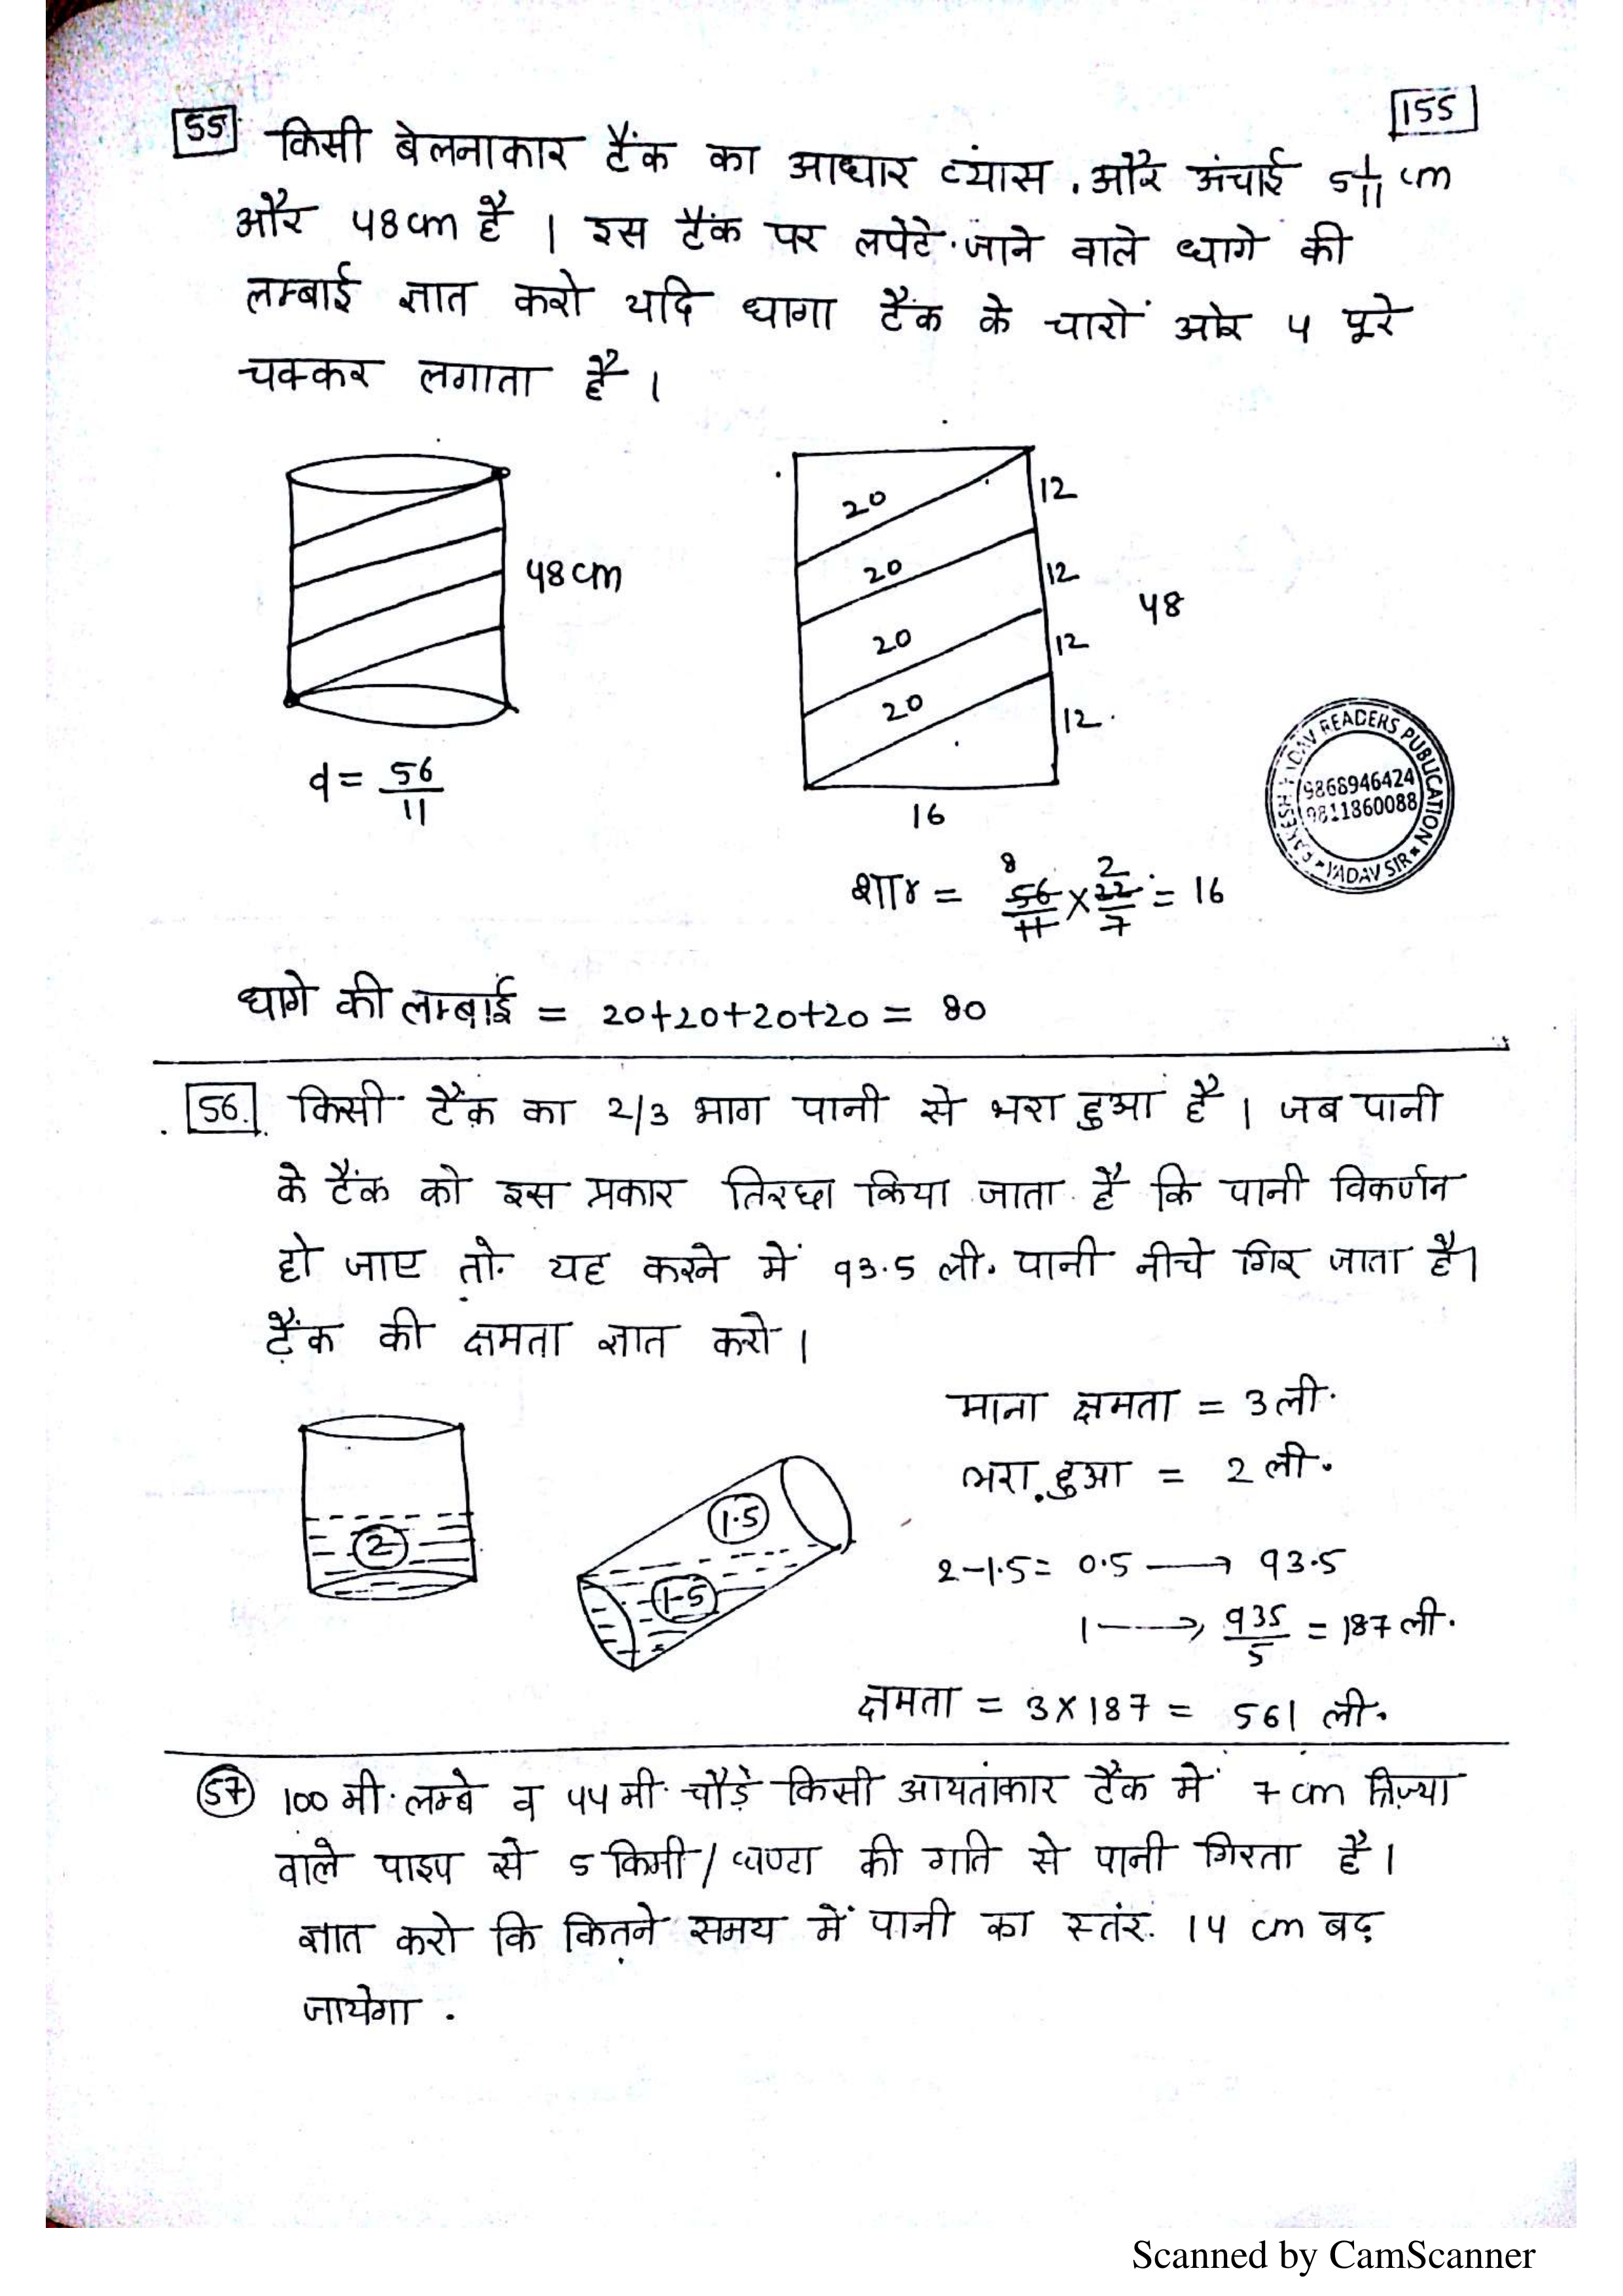 155
55. किसी बेलनाकार टैंक का आधार व्यास . और ऊंचाई 5 1/11 cm
और 48cm है । इस टैंक पर लपेटे जाने वाले धागे की
लम्बाई ज्ञात करो यदि धागा टैंक के चारों ओर 4 पूरे
चक्कर लगाता है ।
20 12
48cm
20 12
48
20 12
20 12
d = 56/11
16
READERS PUBLICATION
9868946424
9811860088
YADAV SIR
8 2
= 56/11 × 22/7 = 16
धागे की लम्बाई = 20+20+20+20 = 80
56. किसी टैंक का 2/3 भाग पानी से भरा हुआ है । जब पानी
के टैंक को इस प्रकार तिरछा किया जाता है कि पानी विकर्णन
हो जाए तो. यह करने में 93.5 ली. पानी नीचे गिर जाता है।
टैंक की क्षमता ज्ञात करो ।
माना क्षमता = 3 ली.
भरा हुआ = 2 ली.
2
1.5
1.5
2-1.5 = 0.5 → 93.5
1 → 935/5 = 187 ली.
क्षमता = 3×187 = 561 ली.
57 100 मी. लम्बे व 44 मी. चौड़े किसी आयताकार टैंक में 7 cm त्रिज्या
वाले पाइप से 5 किमी / घण्टा की गति से पानी गिरता है ।
ज्ञात करो कि कितने समय में पानी का स्तर 14 cm बढ़
जायेगा .
Scanned by CamScanner